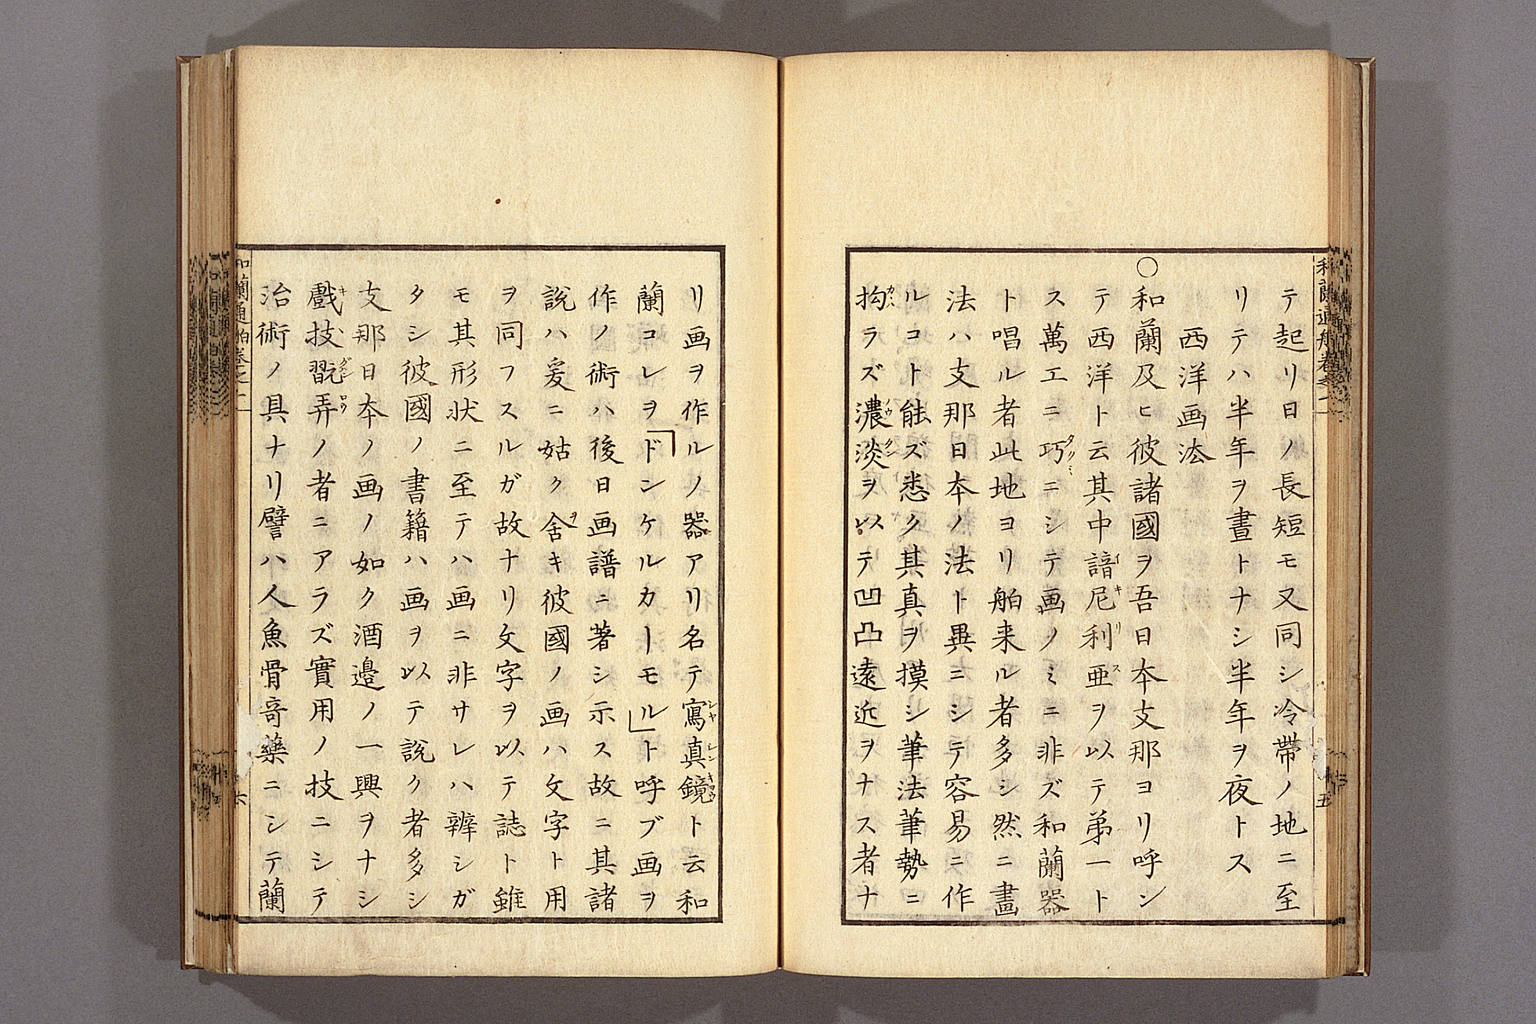 テ起リ日ノ長短モ又同シ冷帶ノ地ニ至
リテハ半年ヲ晝トナシ半年ヲ夜トス
西洋画法
○和蘭及ヒ彼諸國ヲ吾日本支那ヨリ呼ン
テ西洋ト云其中諳尼利亜ヲ以テ第一ト
ス萬工ニ巧ニシテ画ノミニ非ズ和蘭器
ト唱ル者此地ヨリ舶来ル者多シ然ニ畫
法ハ支那日本ノ法ト異ニシテ容易ニ作
ルコト能ズ悉ク其真ヲ摸シ筆法筆勢ニ
拘ラズ濃淡ヲ以テ凹凸遠近ヲナス者ナ
リ画ヲ作ルノ器アリ名テ寫真鏡ト云和
蘭コレヲ「ドンケルカーモル」ト呼ブ画ヲ
作ノ術ハ後日画譜ニ著シ示ス故ニ其諸
説ハ爰ニ姑ク舍キ彼國ノ画ハ文字ト用
ヲ同フスルガ故ナリ文字ヲ以テ誌ト雖
モ其形状ニ至テハ画ニ非サレハ辨シガ
タシ彼國ノ書籍ハ画ヲ以テ説ク者多シ
支那日本ノ画ノ如ク酒邉ノ一興ヲナシ
戲技翫弄ノ者ニアラズ實用ノ技ニシテ
治術ノ具ナリ譬ハ人魚骨奇藥ニシテ蘭